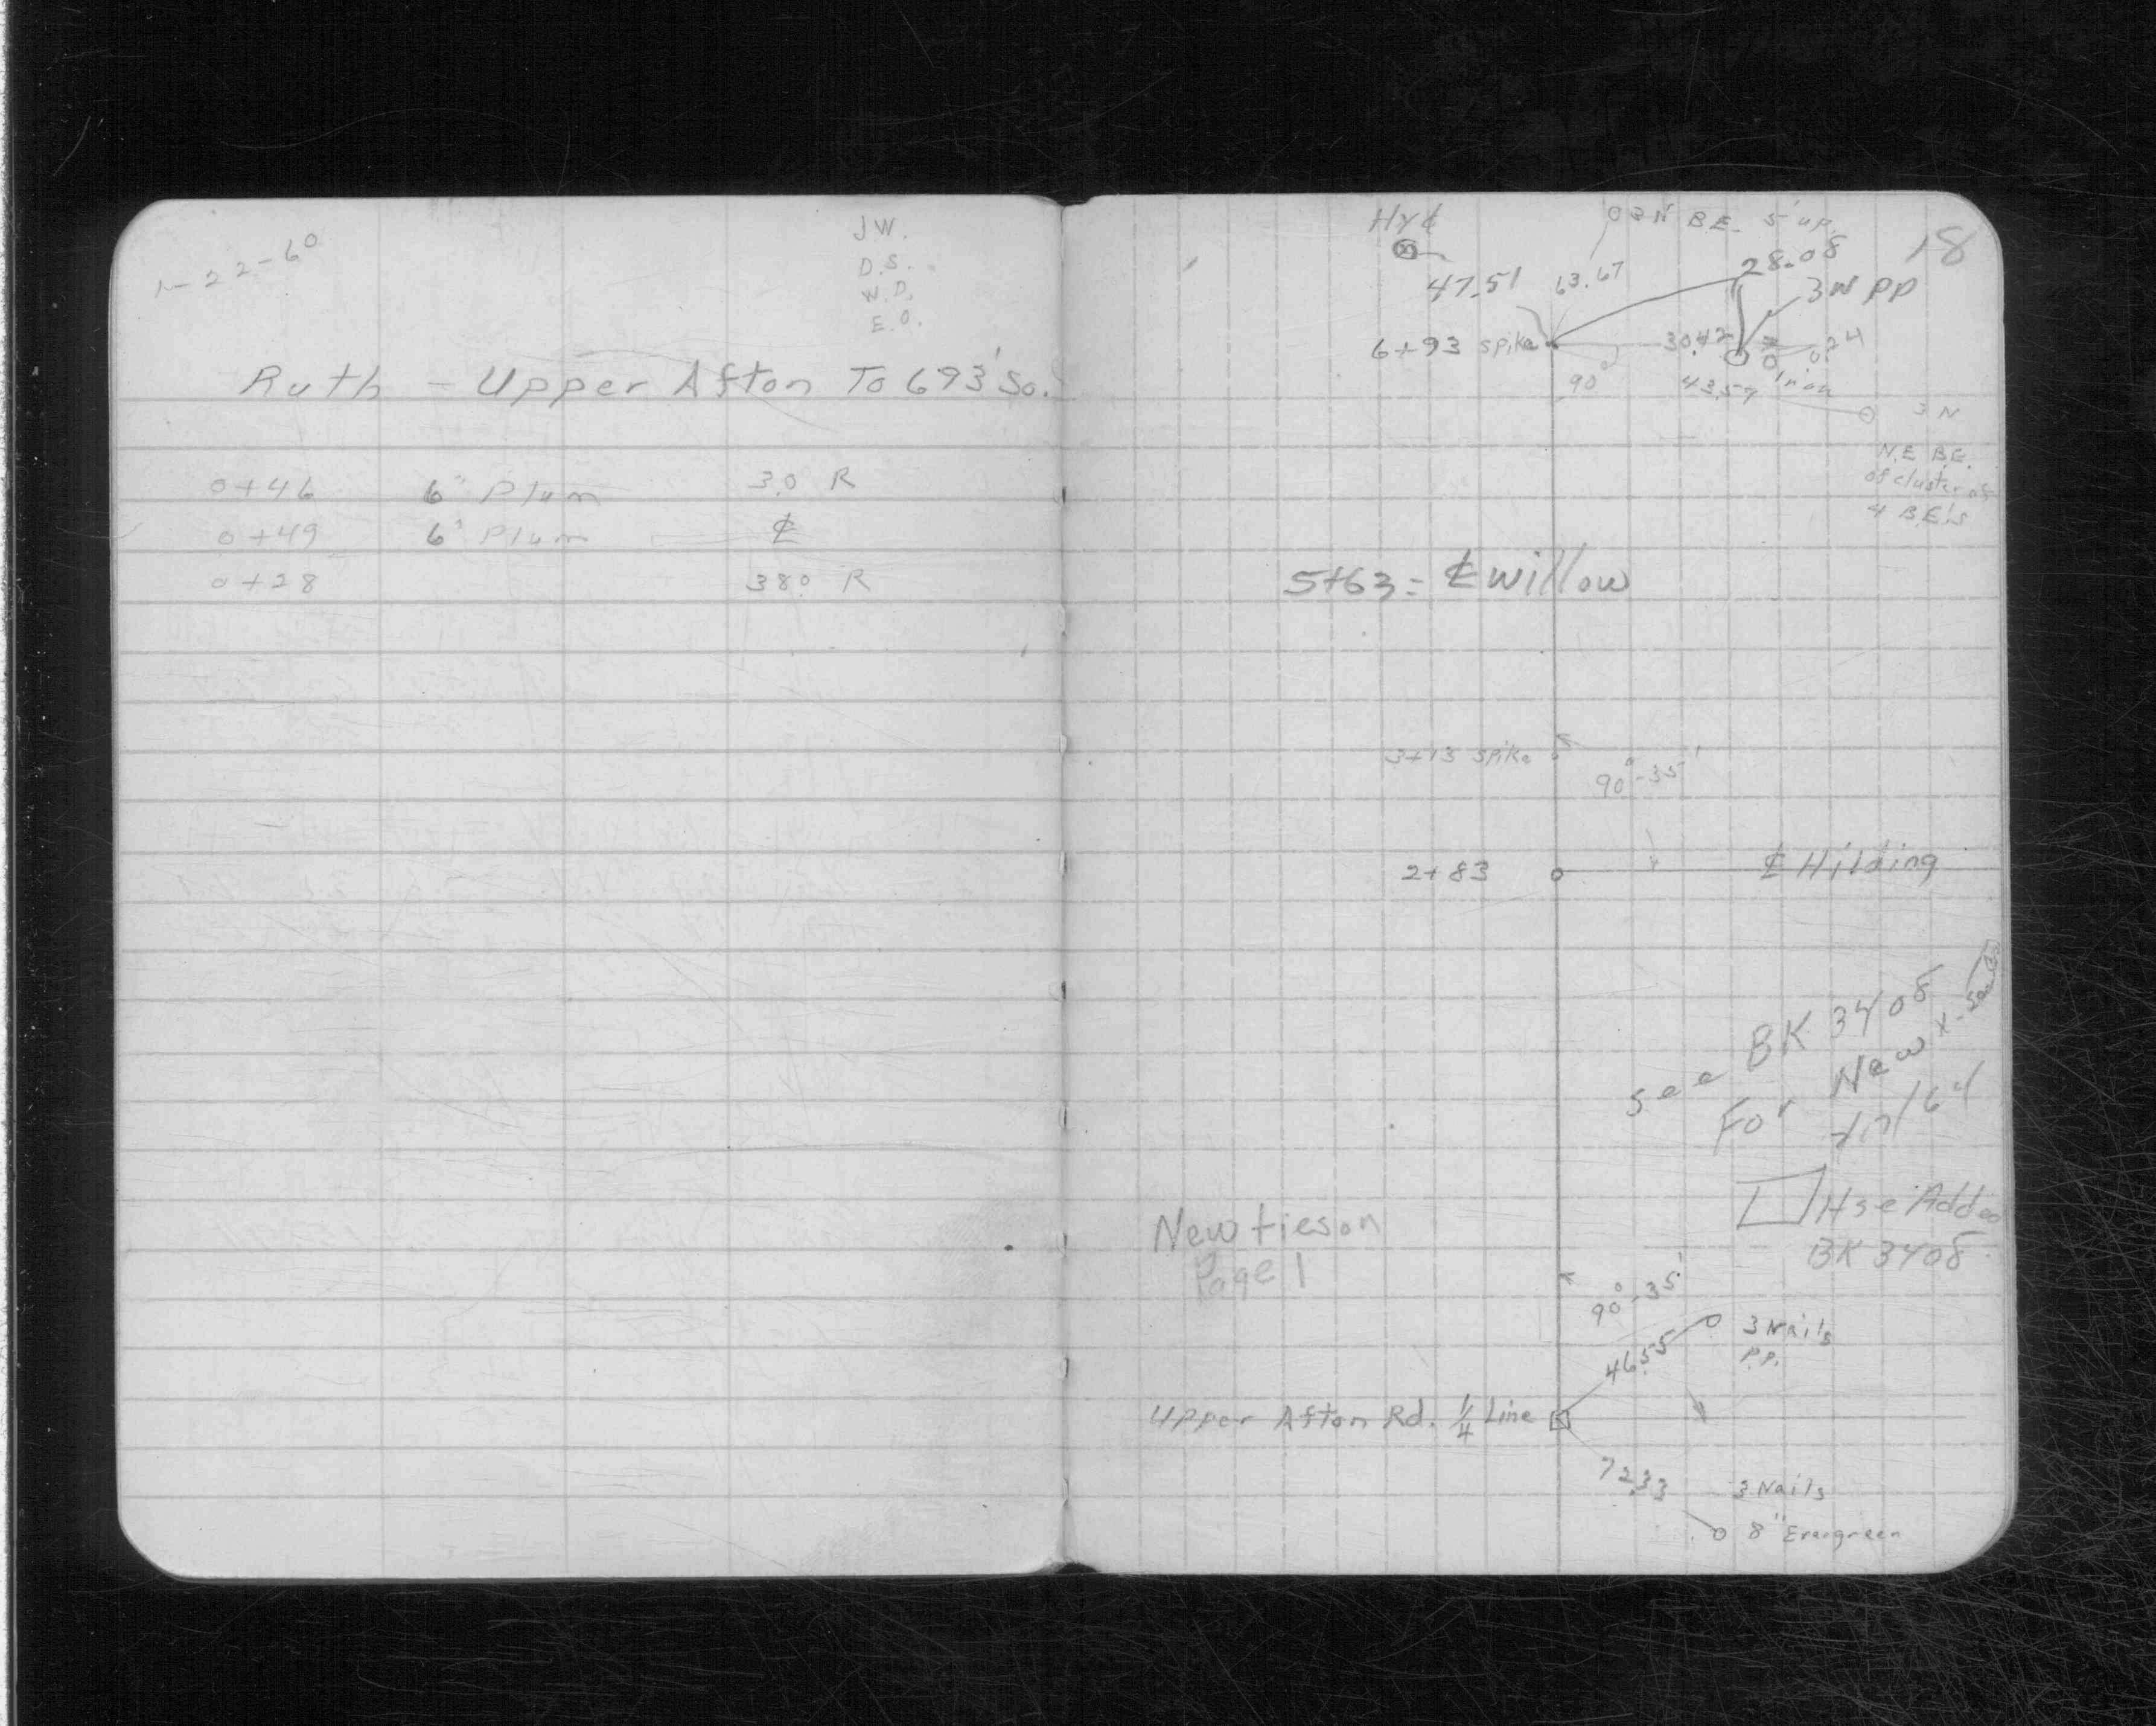 1-22-60
JW.
D.S.
W.D.
E.O.
Ruth - Upper Afton To 693' So.
0+46 6" Plum 3.0 R
0+49 6" Plum ℄
0+28 38.0 R
18
Hyd
3 N B.E. 5' up
47.51 63.67 28.08
3 N PP
6+93 spike 30.42 0.24
90° 43.57 Iron
3 N
N.E. B.E.
of cluster of
4 B.E.'s
5+63 = ℄ Willow
3+13 spike
90°-35'
2+83 ℄ Hilding
See BK 3408
For New X-Sec
Hse Added
BK 3408
New ties on
Page 1
90°-35'
3 Nails
P.P.
46.55
Upper Afton Rd. 1/4 Line
72.33
3 Nails
8" Evergreen